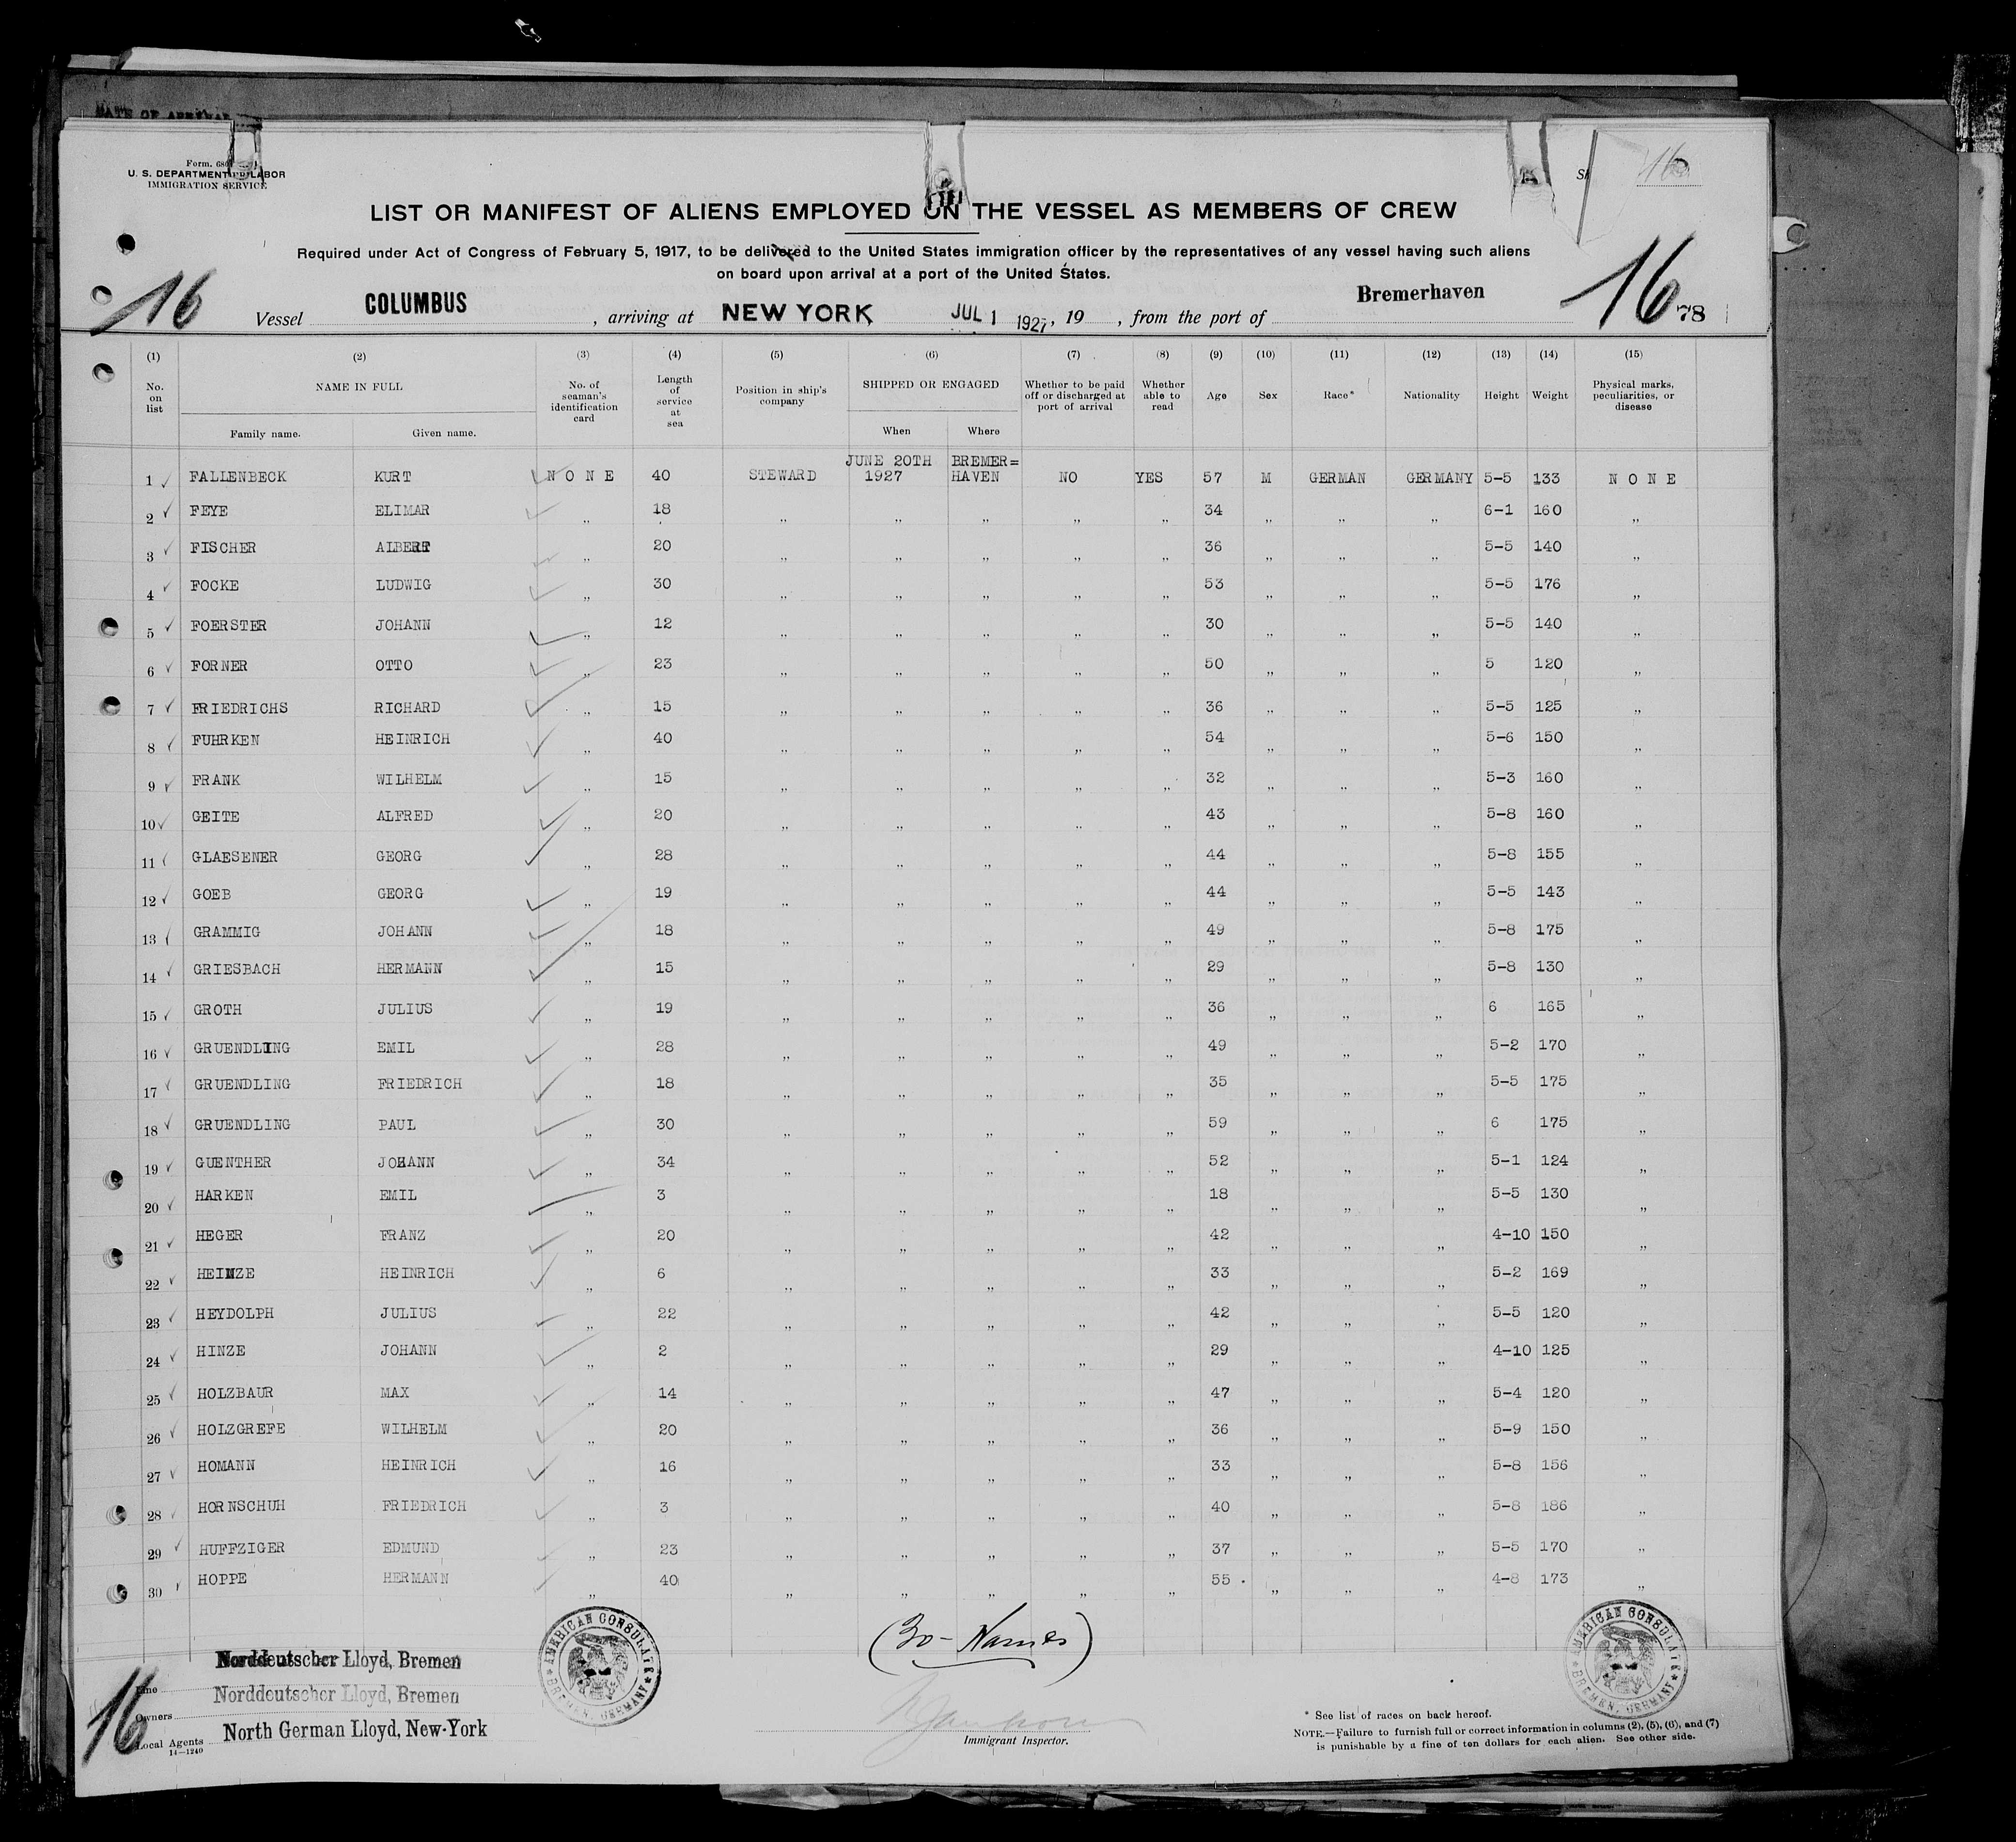 DATE OF ARRIVAL
Form. 680
U. S. DEPARTMENT OF LABOR
IMMIGRATION SERVICE
16
LIST OR MANIFEST OF ALIENS EMPLOYED ON THE VESSEL AS MEMBERS OF CREW
Required under Act of Congress of February 5, 1917, to be delivered to the United States immigration officer by the representatives of any vessel having such aliens
on board upon arrival at a port of the United States.
16 Vessel COLUMBUS , arriving at NEW YORK JUL 1 1927, 19 , from the port of Bremerhaven 16 78
(1) (2) (3) (4) (5) (6) (7) (8) (9) (10) (11) (12) (13) (14) (15)
No. on list NAME IN FULL Family name. Given name. No. of seaman's identification card Length of service at sea Position in ship's company SHIPPED OR ENGAGED When Where Whether to be paid off or discharged at port of arrival Whether able to read Age Sex Race* Nationality Height Weight Physical marks, peculiarities, or disease
1 FALLENBECK KURT NONE 40 STEWARD JUNE 20TH 1927 BREMER= HAVEN NO YES 57 M GERMAN GERMANY 5-5 133 NONE
2 FEYE ELIMAR „ 18 „ „ „ „ „ 34 „ „ „ 6-1 160 „
3 FISCHER ALBERT „ 20 „ „ „ „ „ 36 „ „ „ 5-5 140 „
4 FOCKE LUDWIG „ 30 „ „ „ „ „ 53 „ „ „ 5-5 176 „
5 FOERSTER JOHANN „ 12 „ „ „ „ „ 30 „ „ „ 5-5 140 „
6 FORNER OTTO „ 23 „ „ „ „ „ 50 „ „ „ 5 120 „
7 FRIEDRICHS RICHARD „ 15 „ „ „ „ „ 36 „ „ „ 5-5 125 „
8 FUHRKEN HEINRICH „ 40 „ „ „ „ „ 54 „ „ „ 5-6 150 „
9 FRANK WILHELM „ 15 „ „ „ „ „ 32 „ „ „ 5-3 160 „
10 GEITE ALFRED „ 20 „ „ „ „ „ 43 „ „ „ 5-8 160 „
11 GLAESENER GEORG „ 28 „ „ „ „ „ 44 „ „ „ 5-8 155 „
12 GOEB GEORG „ 19 „ „ „ „ „ 44 „ „ „ 5-5 143 „
13 GRAMMIG JOHANN „ 18 „ „ „ „ „ 49 „ „ „ 5-8 175 „
14 GRIESBACH HERMANN „ 15 „ „ „ „ „ 29 „ „ „ 5-8 130 „
15 GROTH JULIUS „ 19 „ „ „ „ „ 36 „ „ „ 6 165 „
16 GRUENDLING EMIL „ 28 „ „ „ „ „ 49 „ „ „ 5-2 170 „
17 GRUENDLING FRIEDRICH „ 18 „ „ „ „ „ 35 „ „ „ 5-5 175 „
18 GRUENDLING PAUL „ 30 „ „ „ „ „ 59 „ „ „ 6 175 „
19 GUENTHER JOHANN „ 34 „ „ „ „ „ 52 „ „ „ 5-1 124 „
20 HARKEN EMIL „ 3 „ „ „ „ „ 18 „ „ „ 5-5 130 „
21 HEGER FRANZ „ 20 „ „ „ „ „ 42 „ „ „ 4-10 150 „
22 HEINZE HEINRICH „ 6 „ „ „ „ „ 33 „ „ „ 5-2 169 „
23 HEYDOLPH JULIUS „ 22 „ „ „ „ „ 42 „ „ „ 5-5 120 „
24 HINZE JOHANN „ 2 „ „ „ „ „ 29 „ „ „ 4-10 125 „
25 HOLZBAUR MAX „ 14 „ „ „ „ „ 47 „ „ „ 5-4 120 „
26 HOLZGREFE WILHELM „ 20 „ „ „ „ „ 36 „ „ „ 5-9 150 „
27 HOMANN HEINRICH „ 16 „ „ „ „ „ 33 „ „ „ 5-8 156 „
28 HORNSCHUH FRIEDRICH „ 3 „ „ „ „ „ 40 „ „ „ 5-8 186 „
29 HUFFZIGER EDMUND „ 23 „ „ „ „ „ 37 „ „ „ 5-5 170 „
30 HOPPE HERMANN „ 40 „ „ „ „ „ 55 „ „ „ 4-8 173 „
(30 - Names)
AMERICAN CONSULATE BREMEN, GERMANY
AMERICAN CONSULATE BREMEN, GERMANY
Norddeutscher Lloyd, Bremen
Line Norddeutscher Lloyd, Bremen
16
Owners North German Lloyd, New-York
Local Agents
14—1240
Immigrant Inspector.
* See list of races on back hereof.
NOTE.—Failure to furnish full or correct information in columns (2), (5), (6), and (7)
is punishable by a fine of ten dollars for each alien. See other side.